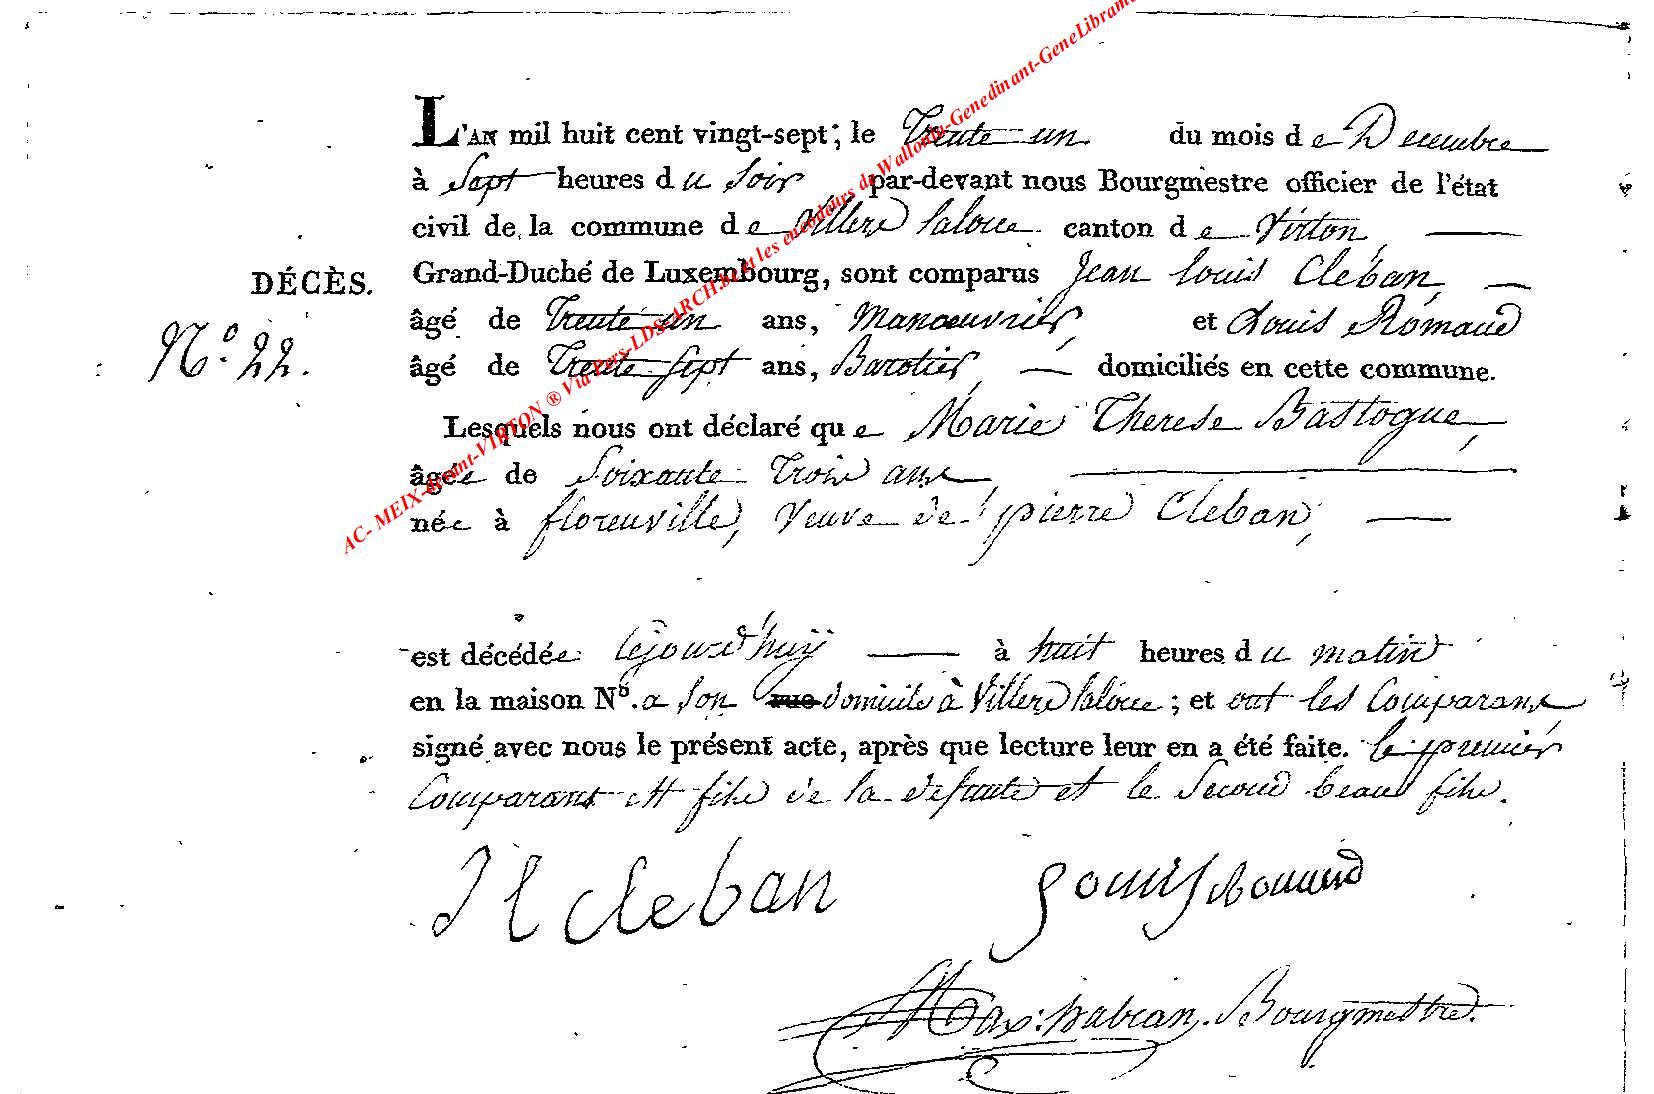 L'AN mil huit cent vingt-sept, le Trente un du mois de Decembre
à Sept heures du Soir par-devant nous Bourgmestre officier de l'état
civil de la commune de Villers laloue canton de Virton,
DÉCÈS.
Grand-Duché de Luxembourg, sont comparus Jean louis Cleban,
âgé de Trente un ans, Manœuvrier, et Louis Romand
N.° 22.
âgé de Trente Sept ans, Barotier, domiciliés en cette commune.
Lesquels nous ont déclaré que Marie Therese Bastogne,
âgée de Soixante Trois ans,
née à florenville, Veuve de pierre Cleban,
est décédée Cejourd'huy à huit heures du matin
en la maison N.o a Son rue domicile à Villers laloue ; et ont les Comparans
signé avec nous le présent acte, après que lecture leur en a été faite. le premier
Comparant est fils de la defunte et le Second beau fils.
J l cleban
Louis Romand
Max: habran. Bourgmestre.
AC- MEIX-devant-VIRTON ® Via Pers-LDS-ARCH.be et les encodeurs de Wallonia-Genedinant-GeneLibrame